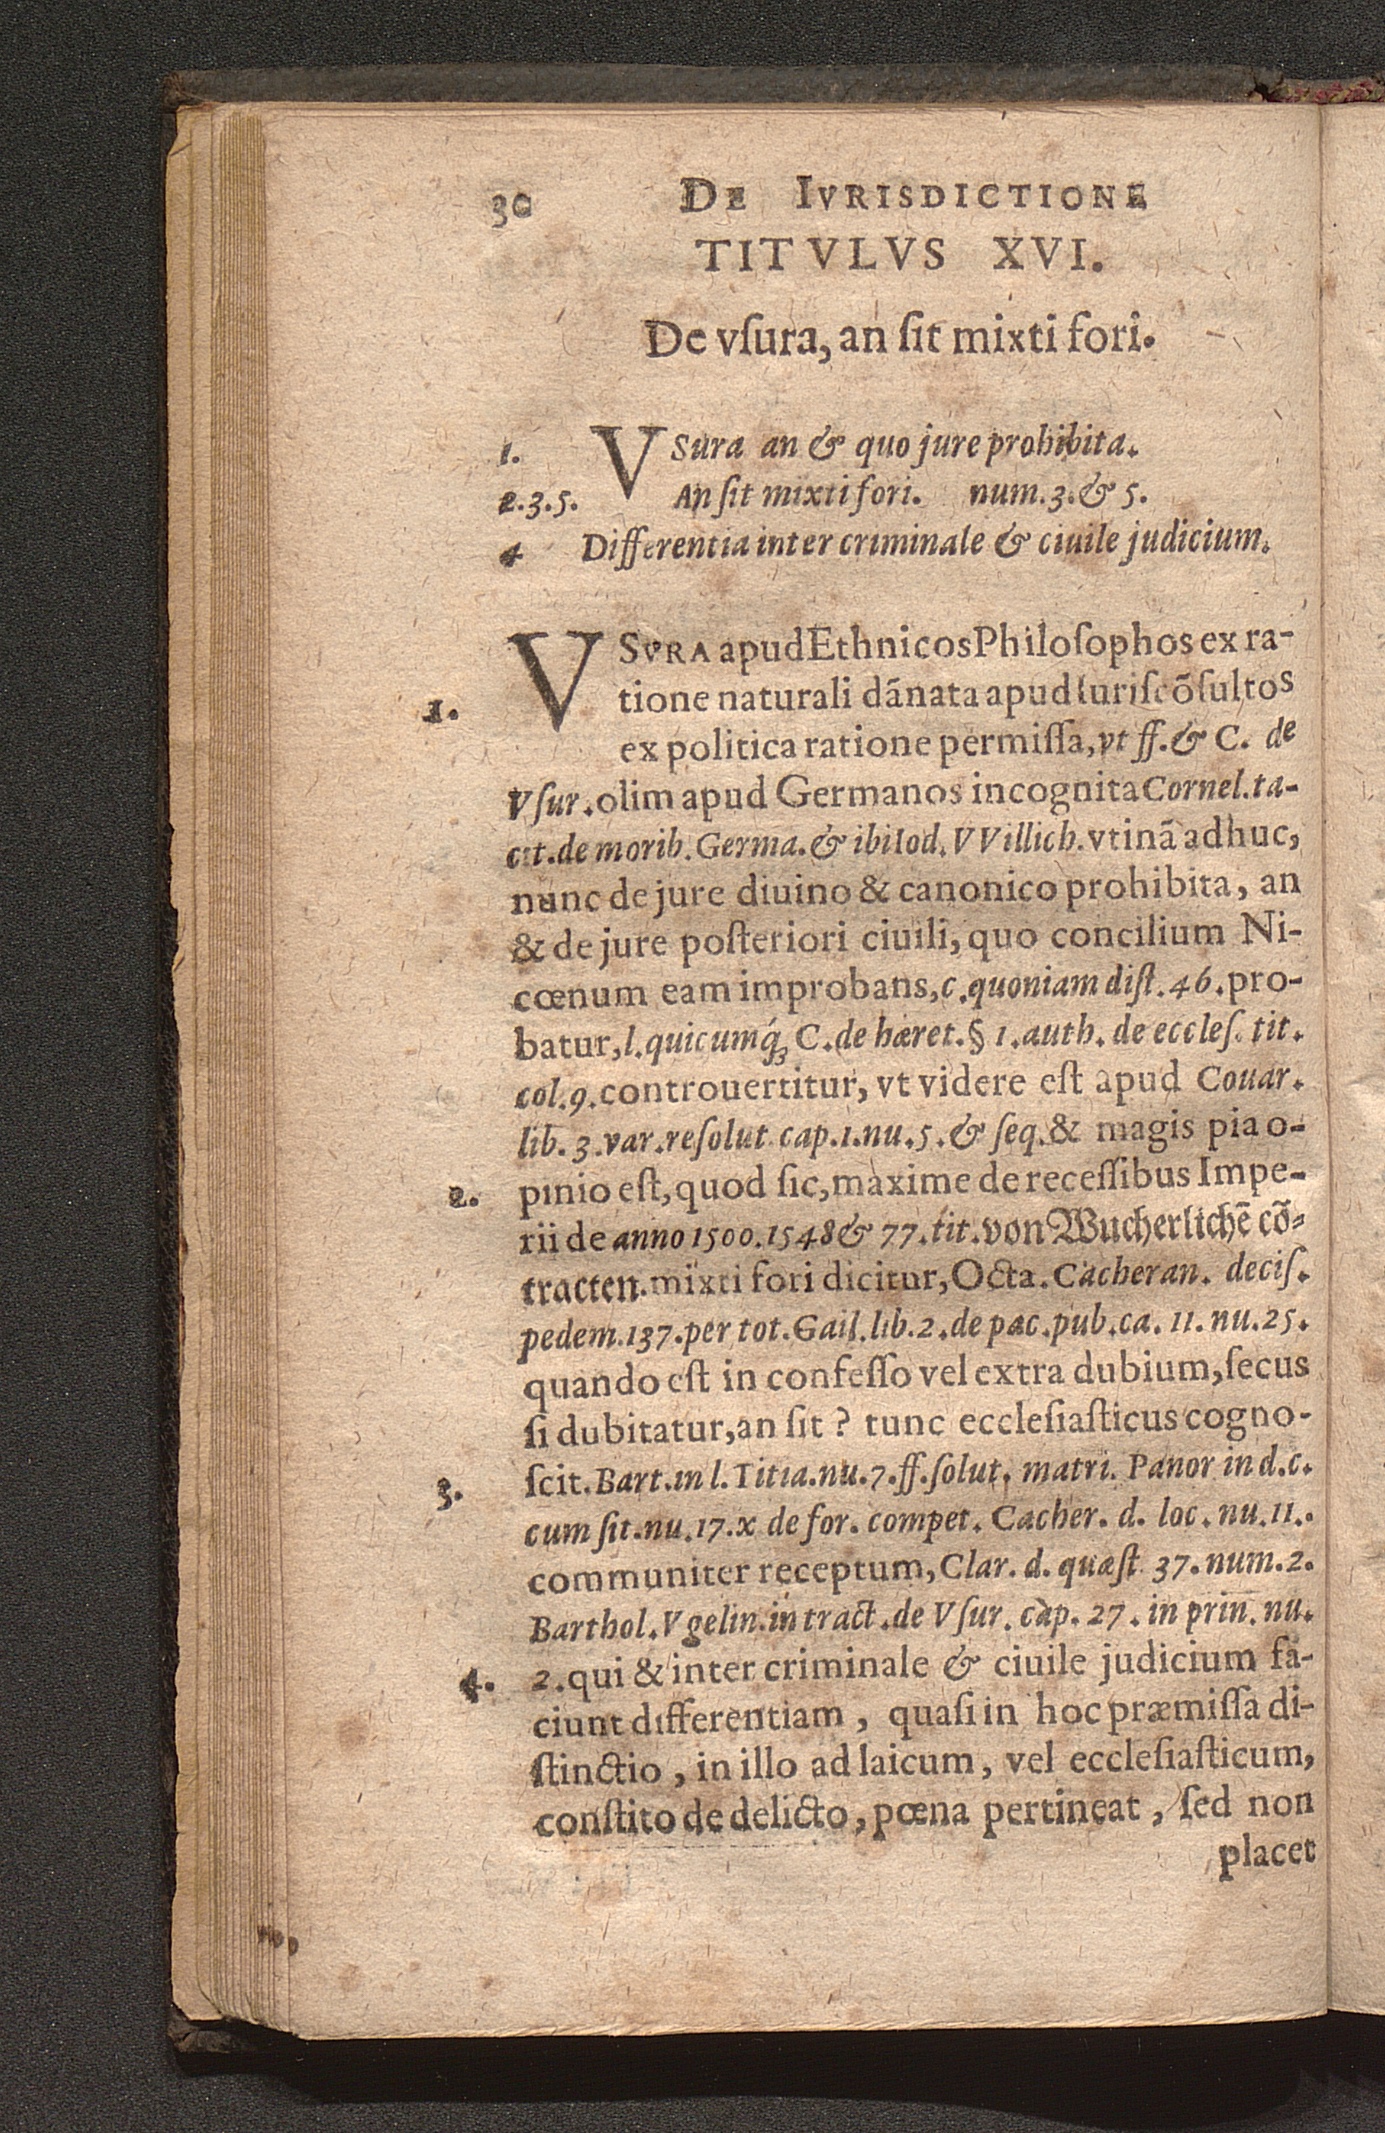 30 DE IVRISDICTIONE
TITVLVS XVI.
De vſura, an ſit mixti fori.
1. VSura an & quo jure prohibita.
2.3.5. An ſit mixti fori. num.3.& 5.
4 Differentia inter criminale & ciuile judicium.
VSVRA apud Ethnicos Philoſophos ex ra-
1. tione naturali dãnata apud Iuriſcõſultos
ex politica ratione permiſſa, vt ff.& C. de
Vſur. olim apud Germanos incognita Cornel.ta-
cit.de morib.Germa.& ibi Iod. VVillich. vtinã adhuc,
nunc de jure diuino & canonico prohibita, an
& de jure poſteriori ciuili, quo concilium Ni-
cœnum eam improbans, c.quoniam diſt.46. pro-
batur, l.quicumq́; C.de hæret.§ 1.auth. de eccleſ. tit.
col.9. controuertitur, vt videre eſt apud Couar.
lib. 3.var.reſolut cap.1.nu.5.& ſeq. & magis pia o-
2. pinio eſt, quod ſic, maxime de receſſibus Impe-
rii de anno 1500.1548 & 77.tit. von Wucherlichẽ cõ-
tracten. mixti fori dicitur, Octa. Cacheran. deciſ.
pedem.137.per tot.Gail.lib.2.de pac.pub.ca. 11. nu.25.
quando eſt in confeſſo vel extra dubium, ſecus
ſi dubitatur, an ſit? tunc eccleſiaſticus cogno-
3. ſcit. Bart.in l.Titia.nu.7.ff.ſolut. matri. Panor in d.c.
cum ſit.nu.17.x de for. compet. Cacher. d. loc. nu.11..
communiter receptum, Clar. d. quæſt 37. num.2.
Barthol.Vgelin.in tract.de Vſur. cap. 27. in prin. nu.
4. 2. qui & inter criminale & ciuile judicium fa-
ciunt differentiam, quaſi in hoc præmiſſa di-
ſtinctio, in illo ad laicum, vel eccleſiaſticum,
conſtito de delicto, pœna pertineat, ſed non
placet